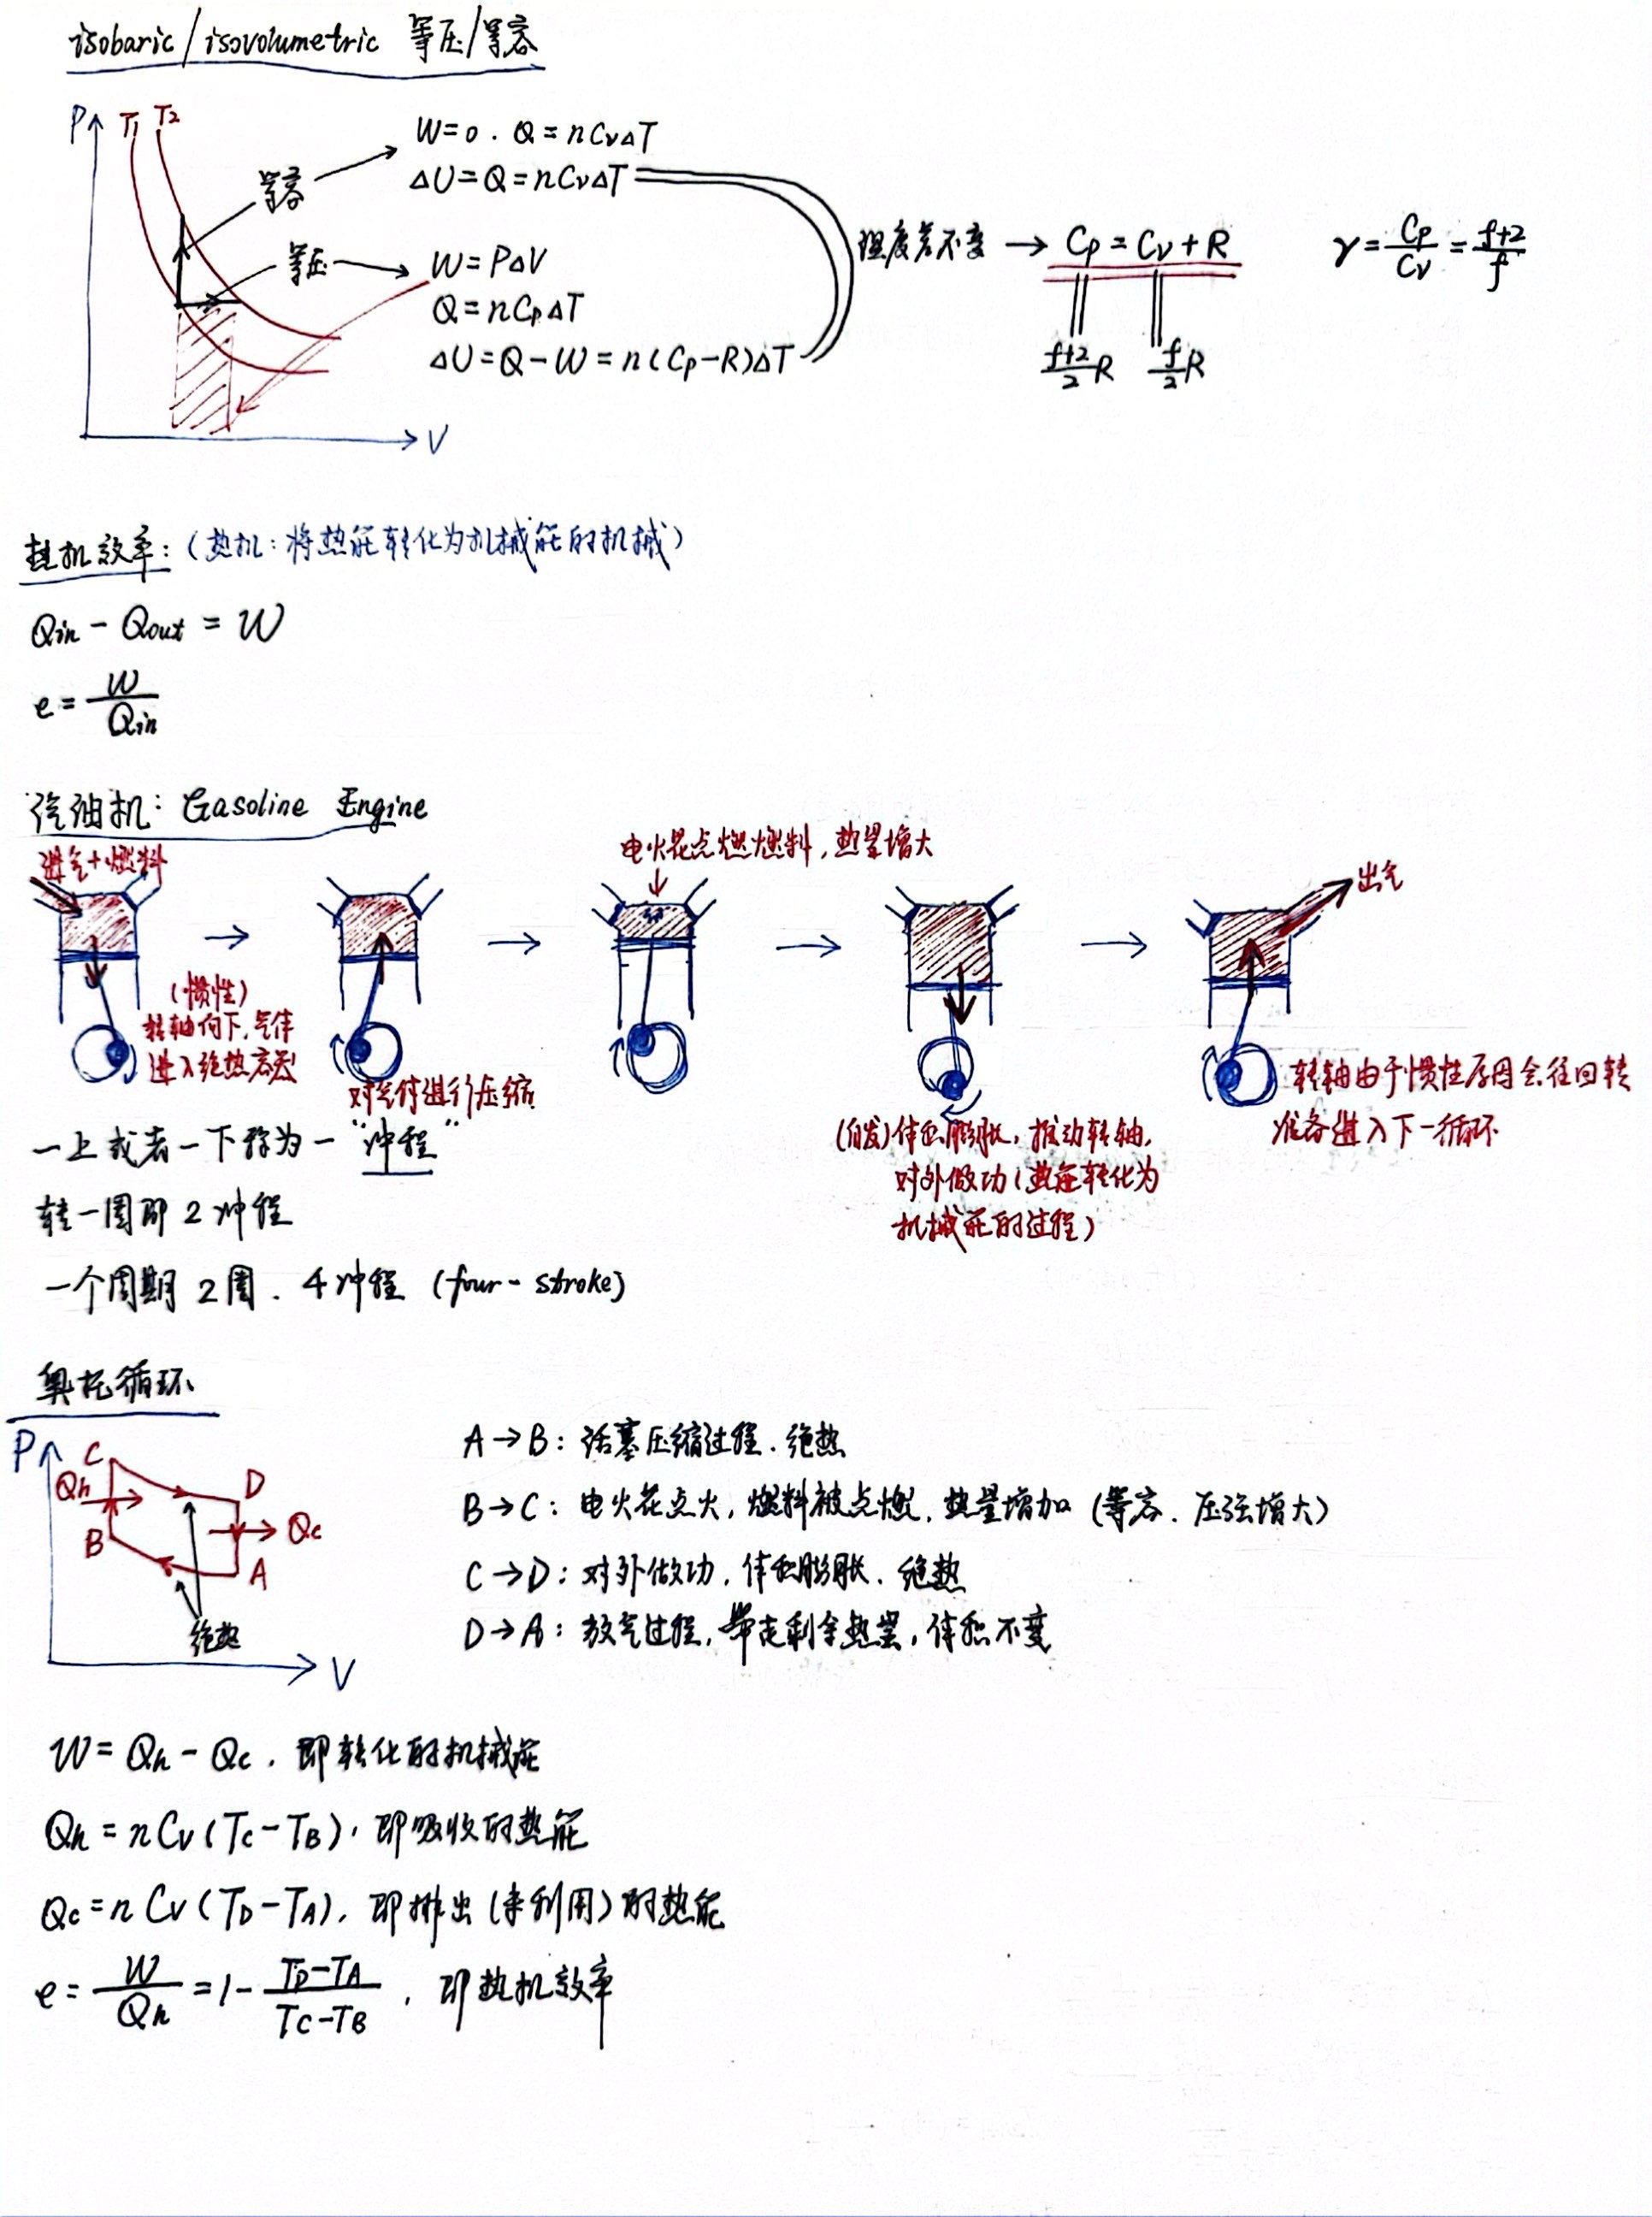 isobaric/isovolumetric 等压/等容
P
T1 T2
等容
W=0. Q=nCvΔT
ΔU=Q=nCvΔT
等压
W=PΔV
Q=nCpΔT
ΔU=Q-W=n(Cp-R)ΔT
温度差不变 → Cp=Cv+R
f+2/2 R f/2 R
γ=Cp/Cv=f+2/f
V
热机效率:(热机:将热能转化为机械能的机械)
Qin-Qout=W
e=W/Qin
汽油机: Gasoline Engine
进气+燃料
(惯性)
转轴向下,气体
进入绝热容器
对气体进行压缩
电火花点燃燃料,热量增大
(自发)体积膨胀,推动转轴,
对外做功(热能转化为
机械能的过程)
出气
转轴由于惯性原因会往回转
准备进入下一循环
一上或者一下称为一“冲程”
转一周即2冲程
一个周期2周. 4冲程 (four-stroke)
奥托循环
P
C
Qh
D
B
Qc
A
绝热
V
A→B: 活塞压缩过程. 绝热
B→C: 电火花点火,燃料被点燃,热量增加 (等容. 压强增大)
C→D: 对外做功,体积膨胀. 绝热
D→A: 放气过程,带走剩余热量,体积不变
W=Qh-Qc. 即转化的机械能
Qh=nCv(TC-TB). 即吸收的热能
Qc=nCv(TD-TA). 即排出(未利用)的热能
e=W/Qh=1-TD-TA/TC-TB. 即热机效率